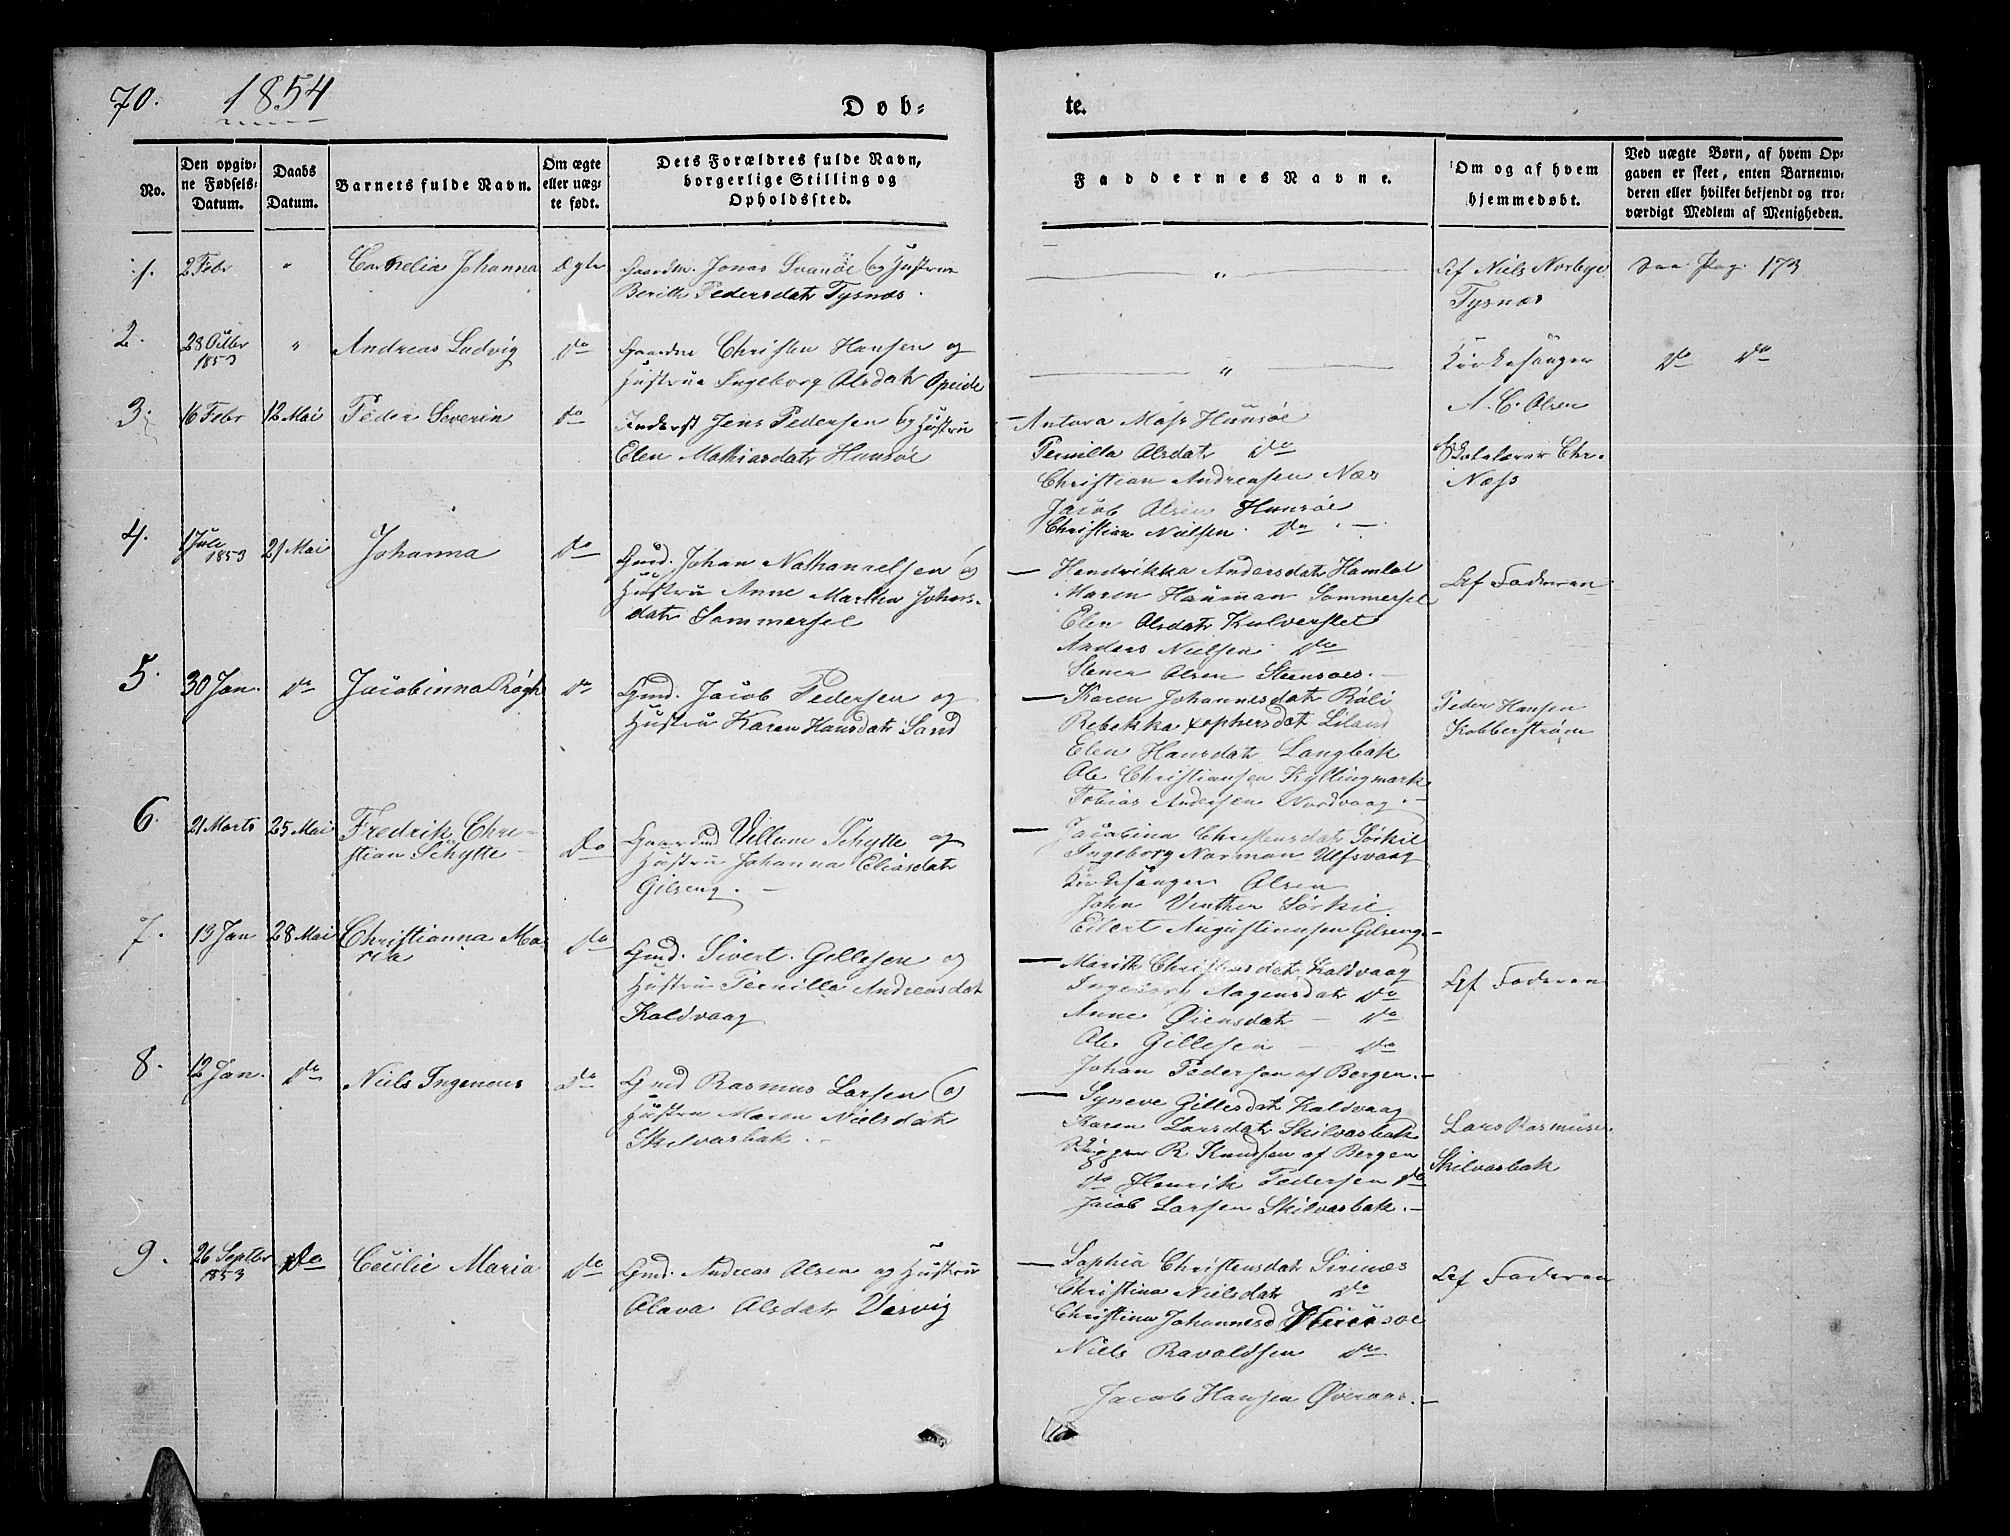 70. 1854
Døb-
te.
No.
Den opgiv-
ne Fødsels-
Datum.
Daabs
Datum.
Barnets fulde Navn.
Om ægte
eller uæg-
te født.
Dets Forældres fulde Navn,
borgerlige Stilling og
Opholdssted.
Faddernes Navne.
Om og af hvem
hjemmedøbt.
Ved uægte Børn, af hvem Op-
gaven er skeet, enten Barnemo-
deren eller hvilket bekjendt og tro-
værdigt Medlem af Menigheden.
1. 2 Febr " Cornelia Johanna Ægte Gaardm. Jonas Svanøe og Hustrue
Berith Pedersdatr Tysnæs.
" Af Niels Norbye
Tysnæs
Pag. 173
2. 28 Octbr
1853 " Andreas Ludvig do Gaardm Christen Hansen og
Hustrue Ingeborg Olsdatr Opeide
" Kirkesanger
A. C. Olsen
do do
3. 16 Febr 12 Mai Peder Severin do Inderst Jens Pedersen og Hustru
Elen Mathiasdatr Hunsøe
Antora Moss Hunsøe
Pernilla Olsdatr do
Christian Andreasen Næs
Jacob Olsen Hunsøe
Christian Nielsen do
Skolelærer Chr.
Næss
4. 1 Juli
1853 21 Mai Johanna do Gmd. Johan Nathanaelsen og
Hustru Anne Martha Johans-
datr Sommersel
Hendrikka Andersdatr Hamlot
Maren Hauman Sommersel
Elen Olsdatr Kalverslet
Anders Nielsen do
Stener Olsen Steensøes
Af Faderen
5. 30 Jan. do Jacobinna Røgh do Gmd. Jacob Pedersen og
Hustru Karen Hansdatr Sand
Karen Johannesdatr Røli
Rebekka xophersdatr Liland
Elen Hansdatr Langbak
Ole Christiansen Kyllingmark
Tobias Andersen Nordvaag
Peder Hansen
Kobberstrøm
6. 21 Marts 25 Mai Fredrik Chri-
stian Schytte do Gaardmd Villum Schytte og
Hustru Johanna Eliasdatr
Gilseng.
Jacobina Christensdatr Sørkil
Ingeborg Norman Ulfsvaag
Kirkesanger Olsen
John Winther Sørkil
Eilert Augustinusen Gilseng
7. 13 Jan 28 Mai Christianna Ma-
ria do Gmd. Sivert Gillesen og
Hustru Pernille Andreasdat
Kaldvaag
Marith Christensdatr Kaldvaag
Ingeborg Aagensdatr do
Anne Øiensdatr do
Ole Gillesen do
Johan Pedersen af Bergen
Af Faderen
8. 12 Jan. do Niels Ingenous do Gmd Rasmus Larsen og
Hustru Maren Nielsdatr
Skilvasbak
Syneve Gillesdatr Kaldvaag
Karen Larsdatr Skilvasbak
R. Knudsen af Bergen
do Henrik Pedersen do
Jacob Larsen Skilvasbak
Lars Rasmuse
Skilvasbak
9. 26 Septbr
1853 do Cecilie Maria do Gmd. Andreas Olsen og Hustru
Olava Olsdatr Vasvig
Sophia Christensdatr Sirinæs
Christina Nielsdatr do
Christina Johannesd
Niels Ravaldsen do
Jacob Hansen Øveraas
Af Faderen